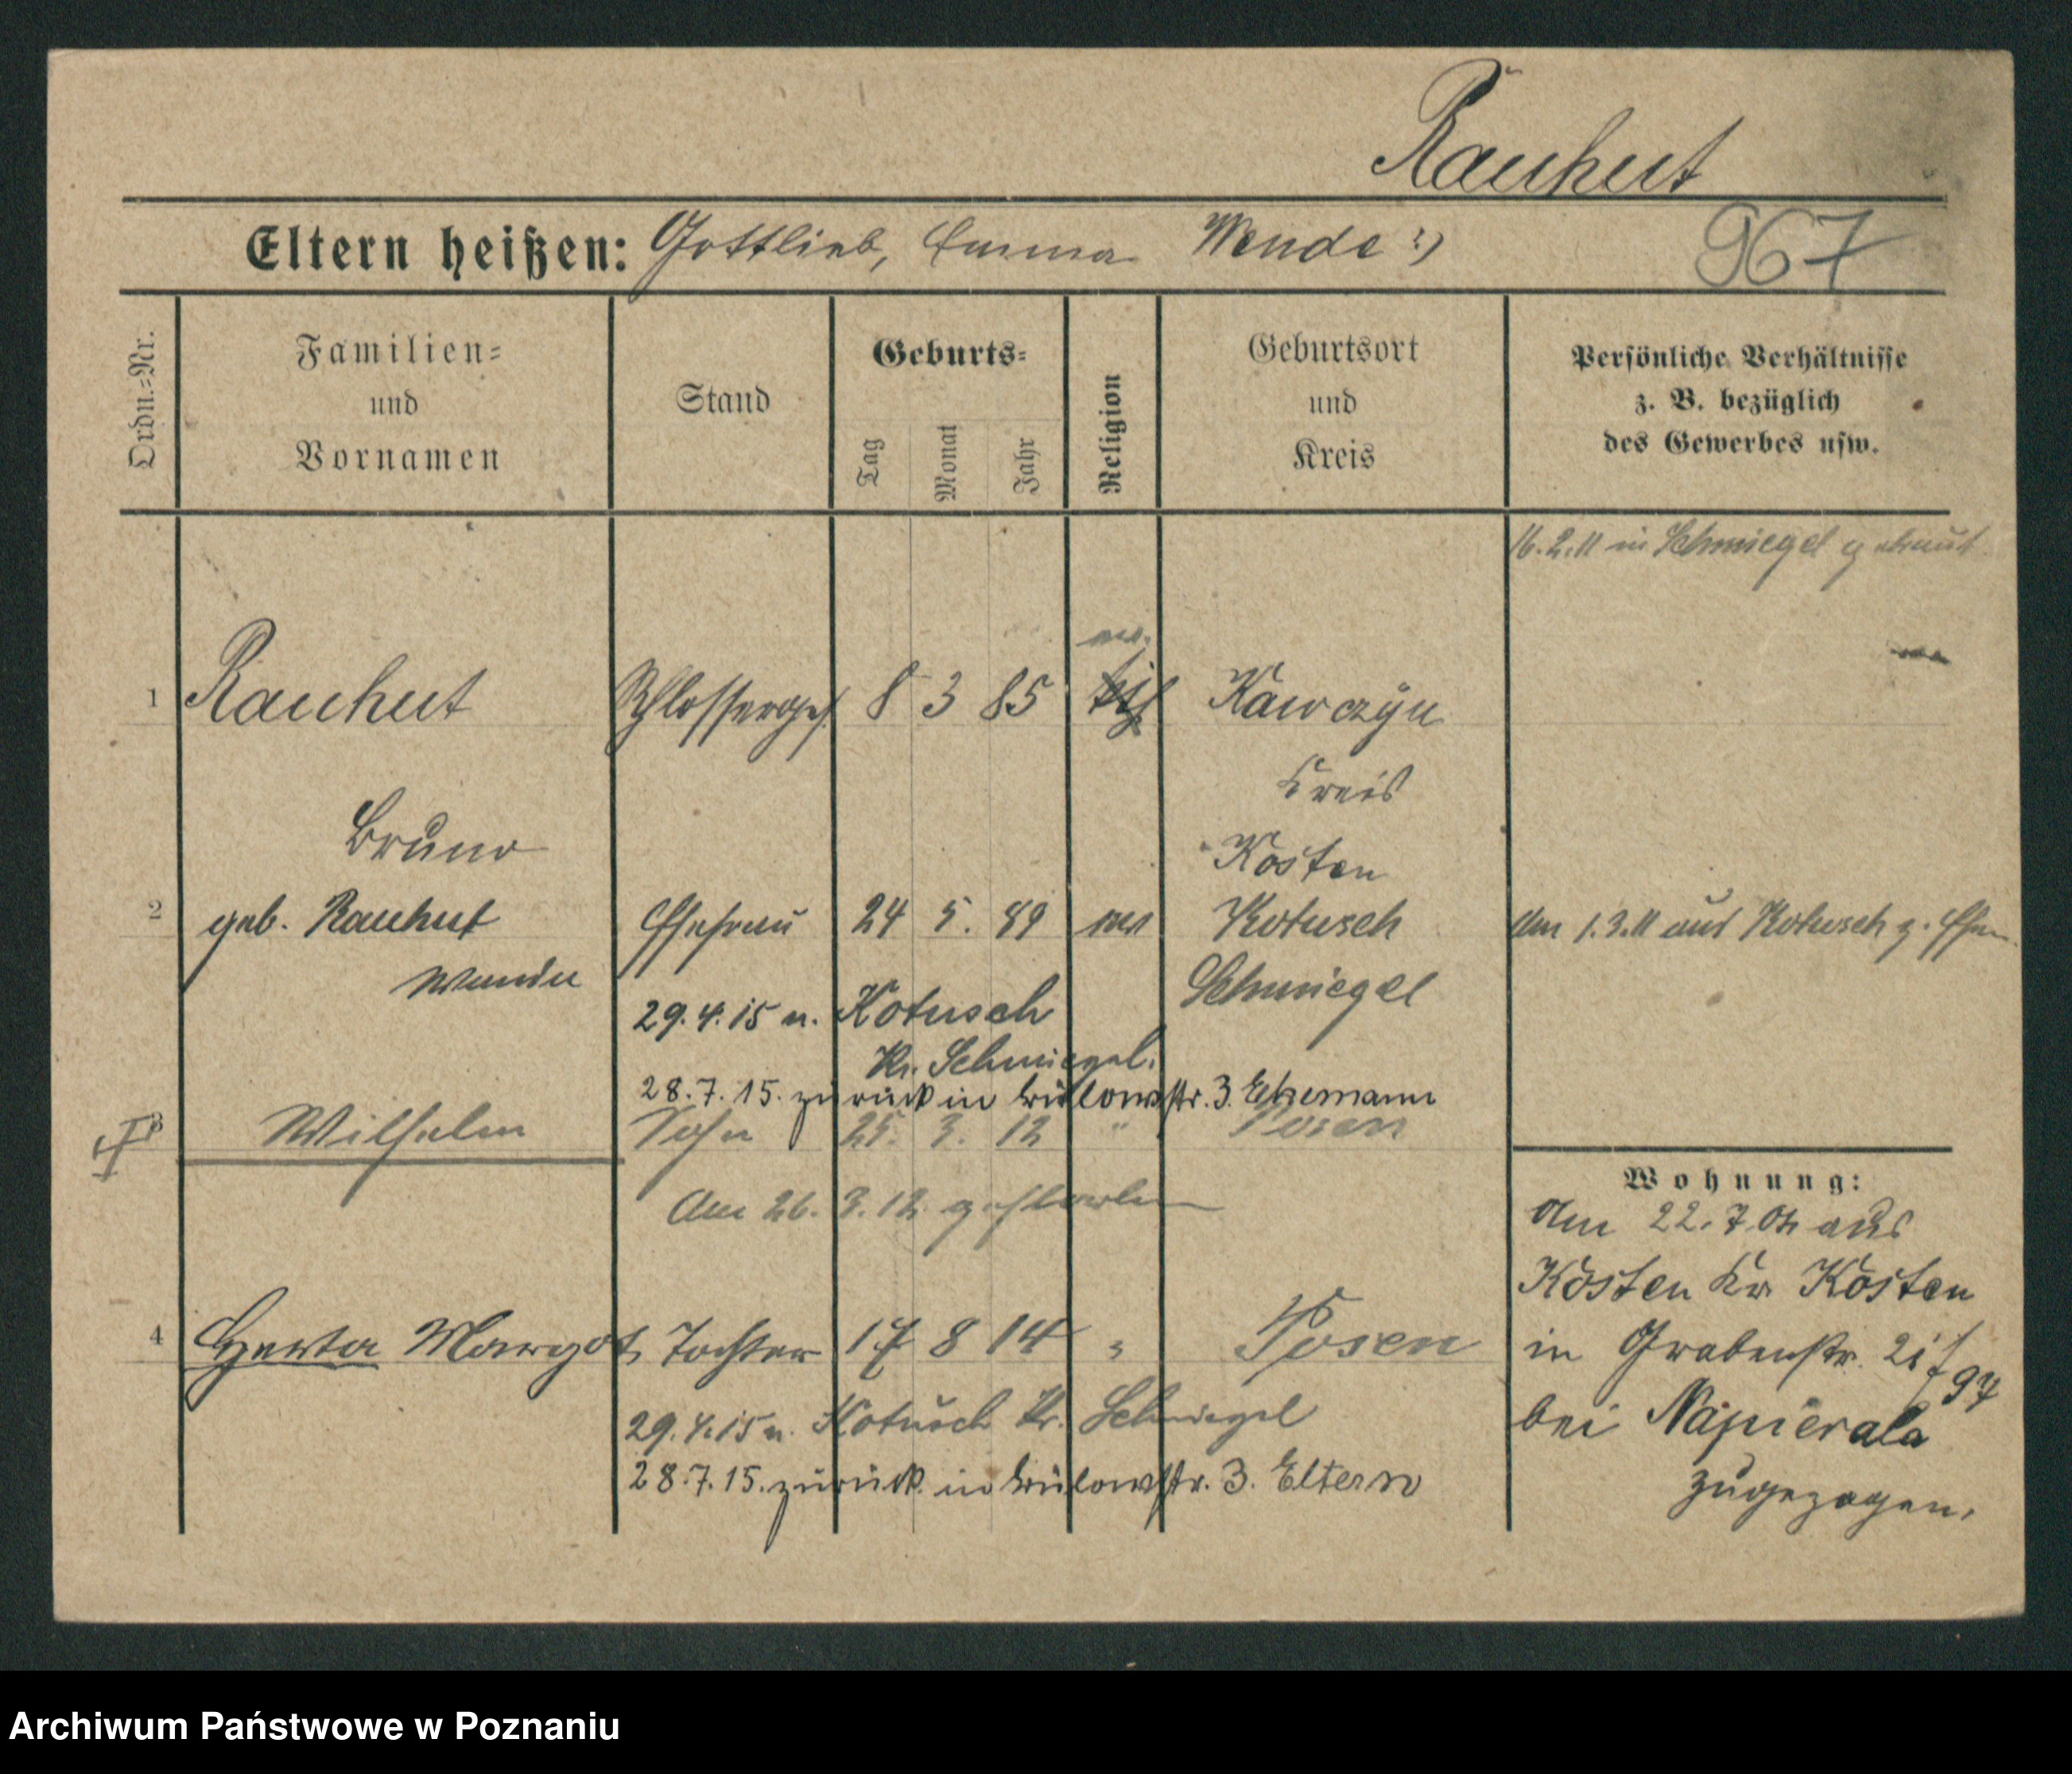 Rauhut
Eltern heißen: Gottlieb, Emma Wende :)
967
Ordn.-Nr.
Familien-
und
Vornamen
Stand
Geburts-
Tag
Monat
Jahr
Religion
Geburtsort
und
Kreis
Persönliche Verhältnisse
z. B. bezüglich
des Gewerbes usw.
16.2.11 in Schmiegel getraut
ev.
1 Rauhut Schlosserges. 8 3 85 Kawczyn
Kreis
Bruno
Kosten
2 geb. Rauhut Ehefrau 24 5. 89 ev Kotusch Am 1.3.11 aus Kotusch z. Ehem.
Wanda Schmiegel
29.4.15 n. Kotusch
Kr. Schmiegel.
28.7.15. zurück in Bülowstr. 3. Ehemann
3 Wilhelm Sohn 25. 3. 12 " Posen
Am 26. 3. 12 gestorben
4 Herta Margot Tochter 17 8 14 " Posen
29.4.15 n. Kotusch Kr. Schmiegel
28.7.15. zurück in Bülowstr. 3. Eltern
Wohnung:
Am 22.7. aus
Kosten Kr. Kosten
in Grabenstr. 97
bei Napierala
zugezogen.
Archiwum Państwowe w Poznaniu